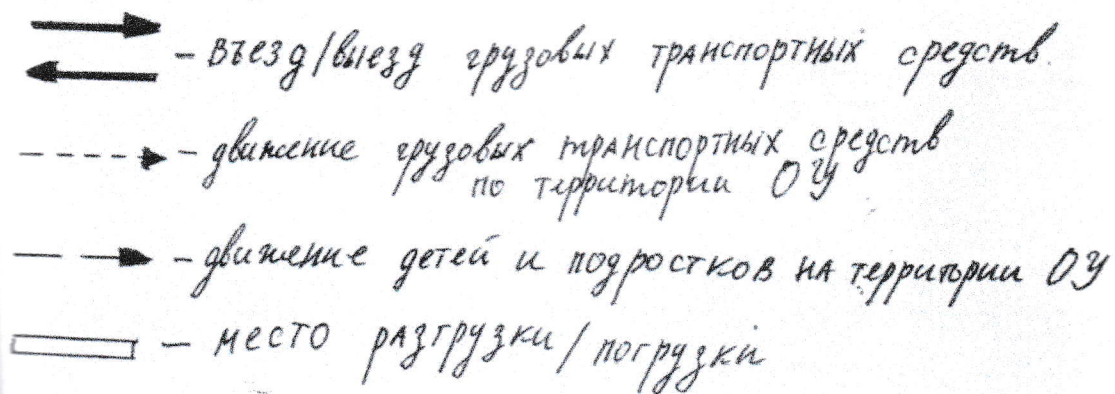 - въезд/выезд грузовых транспортных средств.
- движение грузовых транспортных средств
по территории ОУ
- движение детей и подростков на территории ОУ
- место разгрузки/погрузки